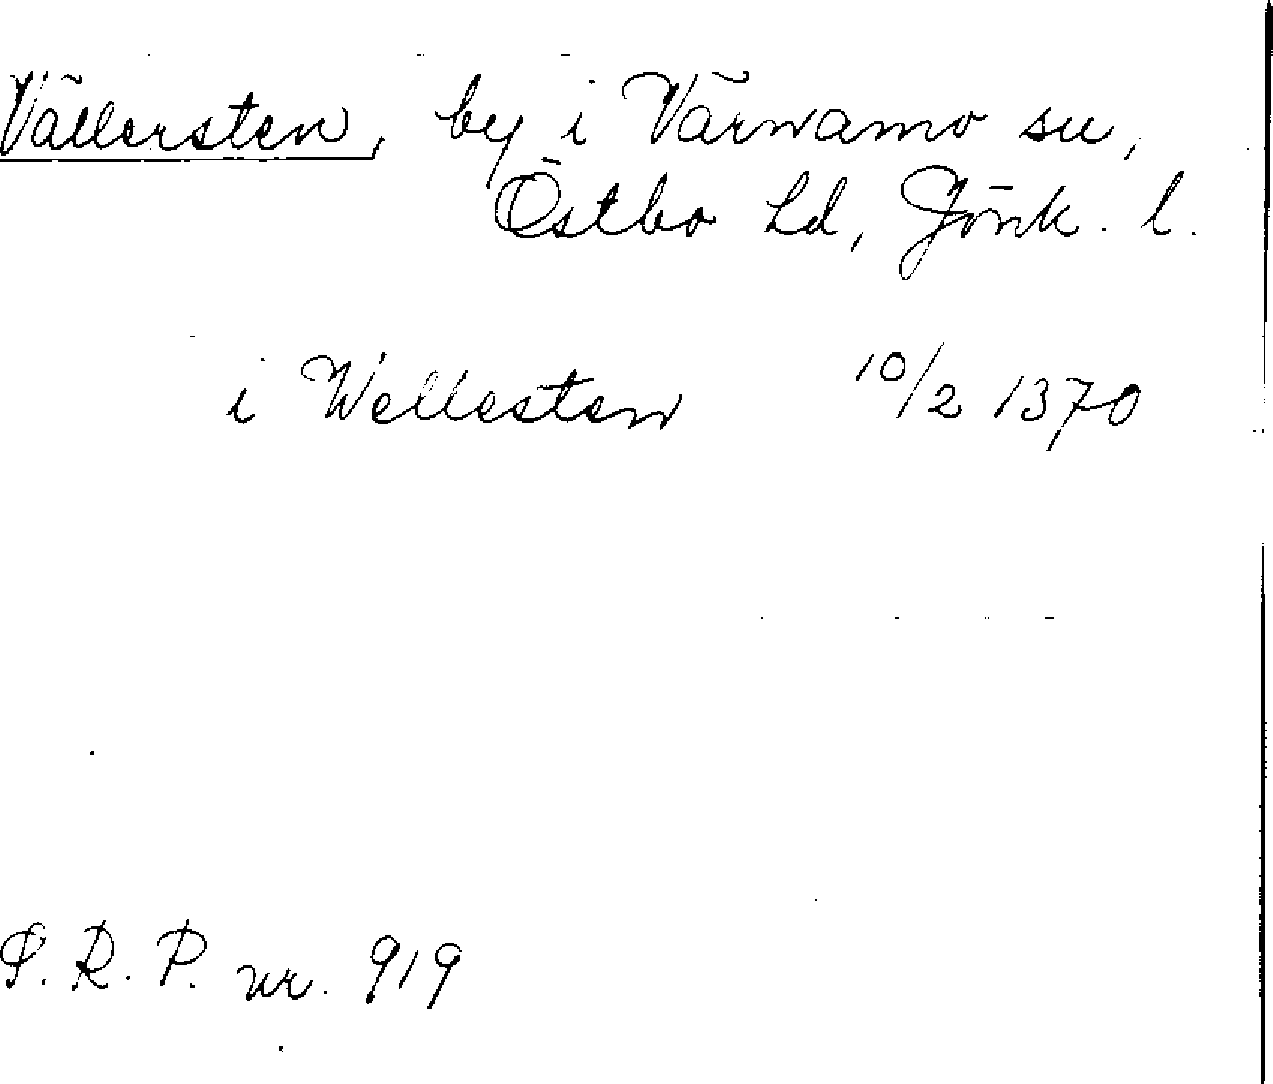 Vällersten, by i Värnamo sn,
Östbo hd, Jönk. l.
i Wellesten 10/2 1370
S.R.P. nr. 919